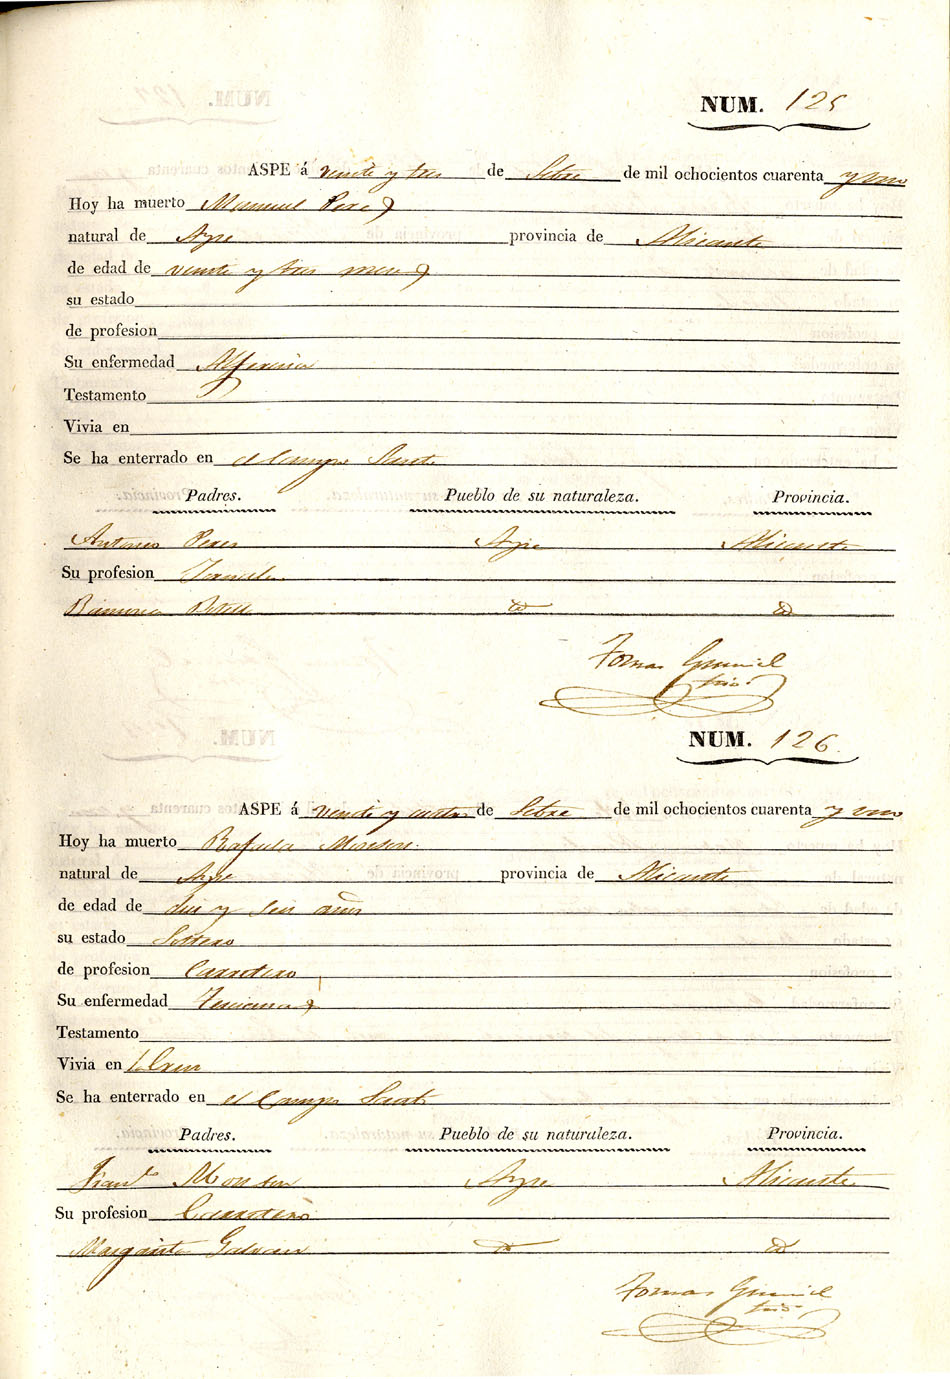 NUM. 125
ASPE á veinte y tres de Setbre de mil ochocientos cuarenta y uno
Hoy ha muerto Manuel Perez
natural de Aspe provincia de Alicante
de edad de veinte y tres meses
su estado
de profesion
Su enfermedad Alferecia
Testamento
Vivia en
Se ha enterrado en el Campo Santo
Padres. Pueblo de su naturaleza. Provincia.
Antonio Perez Aspe Alicante
Su profesion
Ramona id id
Tomas
NUM. 126
ASPE á veinte y cuatro de Setbre de mil ochocientos cuarenta y uno
Hoy ha muerto Rafael
natural de Aspe provincia de Alicante
de edad de diez y seis años
su estado Soltero
de profesion Carretero
Su enfermedad Tercianas
Testamento
Vivia en
Se ha enterrado en el Campo Santo
Padres. Pueblo de su naturaleza. Provincia.
Aspe Alicante
Su profesion Carretero
Margarita Galvan id id
Tomas